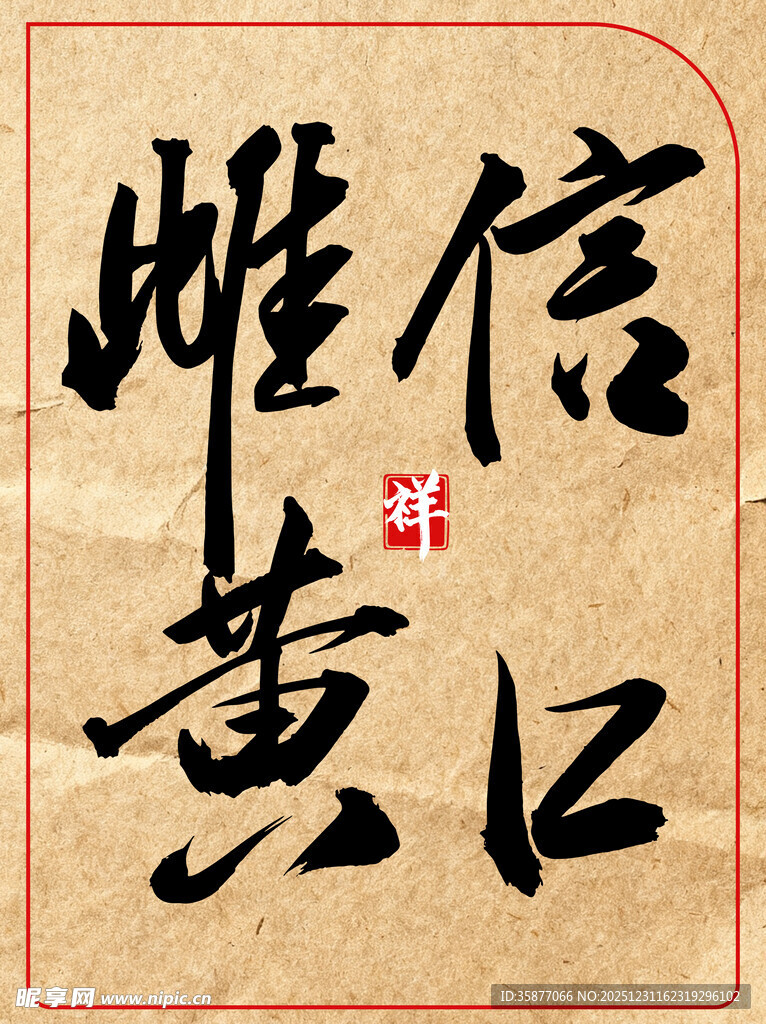 信口
雌黄
祥
昵享网 www.nipic.cn
ID:35877066 NO:20251231162319296102